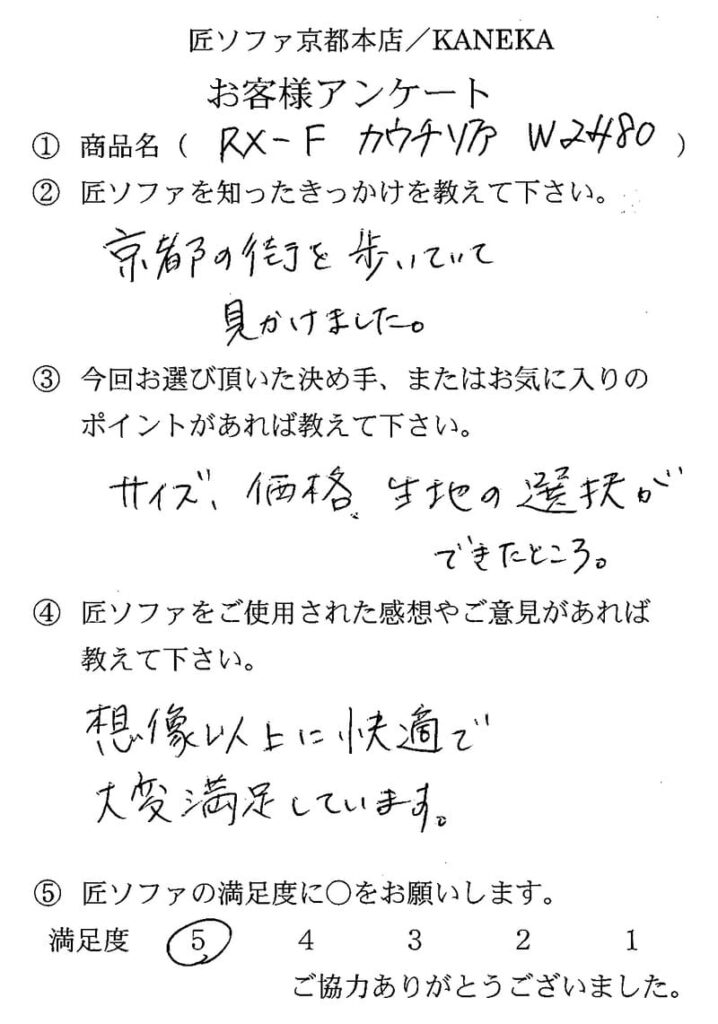 匠ソファ京都本店／KANEKA
お客様アンケート
① 商品名（ RX-F カウチソファ W2480 ）
② 匠ソファを知ったきっかけを教えて下さい。
京都の街を歩いていて
見かけました。
③ 今回お選び頂いた決め手、またはお気に入りの
ポイントがあれば教えて下さい。
サイズ、価格、生地の選択が
できたところ。
④ 匠ソファをご使用された感想やご意見があれば
教えて下さい。
想像以上に快適で
大変満足しています。
⑤ 匠ソファの満足度に〇をお願いします。
満足度 5 4 3 2 1
ご協力ありがとうございました。